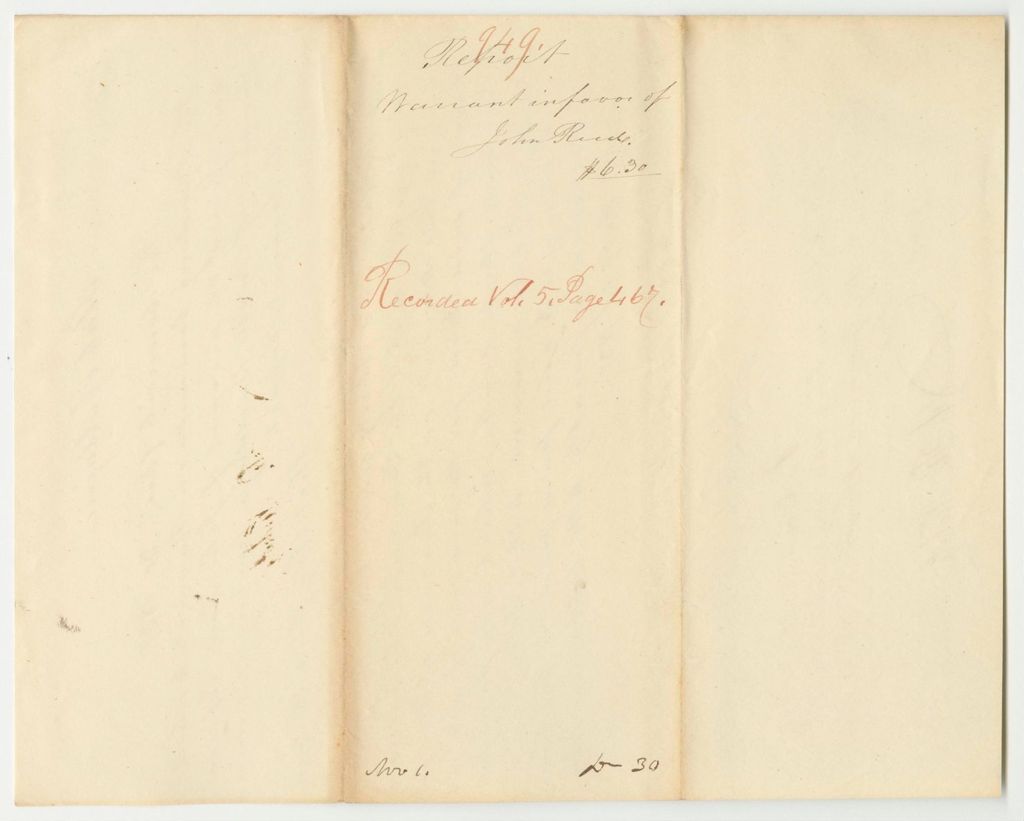 949.
Report
Warrant in favor of
John Reed.
$6.30
Recorded Vol. 5, Page 467.
Nov 1.
30